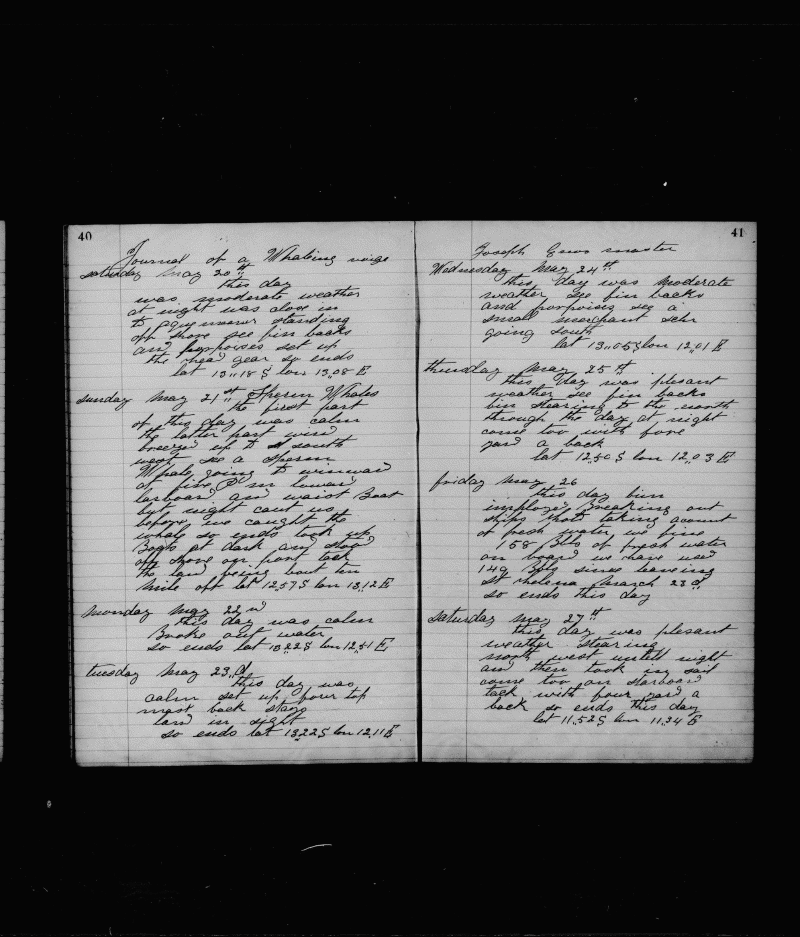 40
Journal of a Whaleing voige
saturday May 20th
this day
was moderate weather
at night was close in
to standing
off shore see fin backs
and porpoises set up
the head gear so ends
lat 13,,18 S lon 13,,08 E
sunday May 21st Sperm Whales
the first part
of this day was calm
the latter part wind
breezd up to south
west see a Sperm
Whale going to winward
at five P m lowerd
larboard and waist Boat
but night caut us
before we caught the
whale so ends took up
Boats at dark and stood
off shore on port tack
the land being bout ten
mile off lat 12,,57 S lon 13,,12 E
monday may 22nd
this day was calm
Broke out water
so ends lat 13,,22 S lon 12,,51 E
tuesday may 23,,d
this day was
calm set up fourtop
mast back stays
land in sight
so ends lat 13,,22 S lon 12,,11 E
41
Joseph master
Wednesday May 24th
this day was Moderate
weather see fin backs
and porpoises see a
small merchant schr
going south
lat 13,,05 S lon 12,,01 E
thursday may 25th
this day was plesant
weather see fin backs
bin stearing to the north
through the day at night
come too with fore
yard a back
lat 12,,50 S lon 12,,03 E
friday may 26
this day bin
imployd Breaking out
ships taking acount
of fresh water we find
158 Blls of fresh water
on board we have used
149 Bbls since leaveing
St helena March 23d
so ends this day
saturday may 27th
this day was plesant
weather stearing
north west untill night
and then took in sail
come too on starboard
tack with four yard a
back so ends this day
lat 11,,52 S lon 11,,34 E